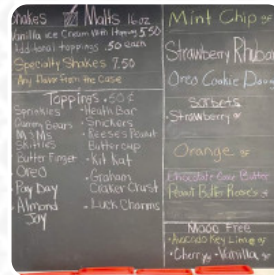 Shakes & Malts 16oz
Vanilla Ice Cream With Topping 5.50
Additional toppings .50 each
Specialty Shakes 7.50
Any Flavor From the Case
Toppings .50¢
Sprinkles
Gummy Bears
M&Ms
Skittles
Butter Finger
Oreo
Pay Day
Almond Joy
Heath Bar
Snickers
Reese's Peanut
Buttercup
Kit Kat
Graham
Craker Churst
Luck Charms
Mint Chip GF
Strawberry Rhubar
Oreo Cookie Dou
Sorbets
Strawberry
Orange GF
Chocolate Butter
Peanut Butter Reese's
Moo Free
Avocado Key Lime
Cherry Vanilla